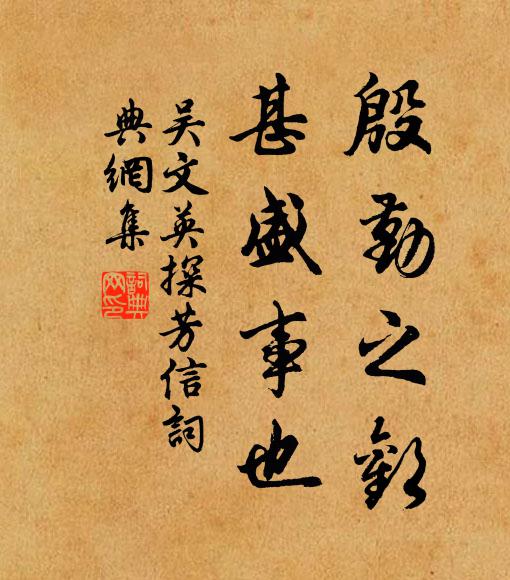 殷勤之歡
甚盛事也
吴文英探芳信詞
典網集
詞典
网印